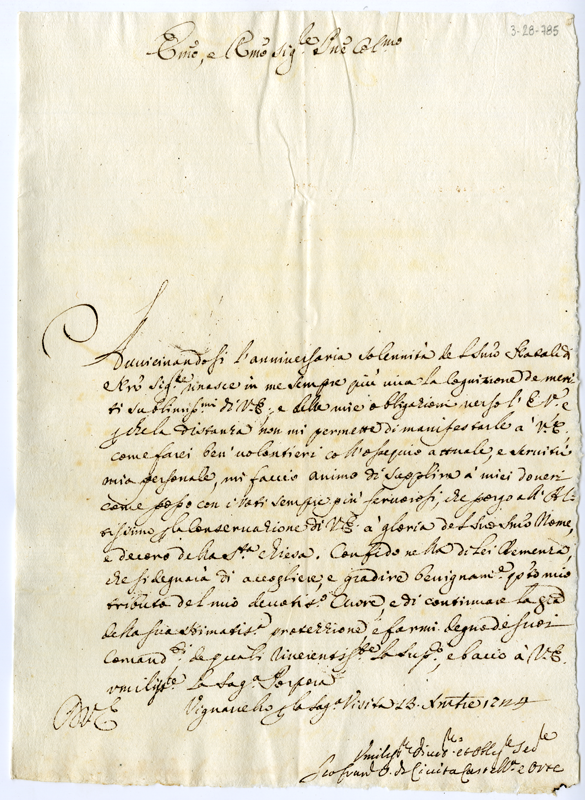 3-28-785
Emo, e Rmo Sigre Pne Colmo
Avvicinandosi l'anniversaria solennità del Smo Natale di
Nro Sigre rinasce in me sempre più viva la cognizione de meri-
ti sublimissmi di V.E., e delle mie obbligazioni verso l'E.V. e
perche la distanza non mi permette di manifestarle à V.E.
come farei ben volontieri coll'ossequio attuale, e servitù
mia personale, mi faccio animo di supplire à miei doveri
come posso con i voti sempre più fervorosi, che porgo all'Al-
tissimo per la Conservazione di V.E. à gloria del suo Smo Nome,
e decoro della Sta Chiesa. Confido nella di Lei Clemenza,
che si degnarà di accogliere, e gradire benignamte questo mio
tributo del mio devotisso Cuore, e di continuare la
della sua stimatisa protezzione, e farmi degno de suoi
comandi, de quali la supco, e bacio à V.E.
umilisste la Saga Porpora
D.V.E. Vignanello per la Saga Visita 23. Xmbre 1724
Umilisso Divmo et Obbligmo Sere
O. di Civita Castellna e Orte